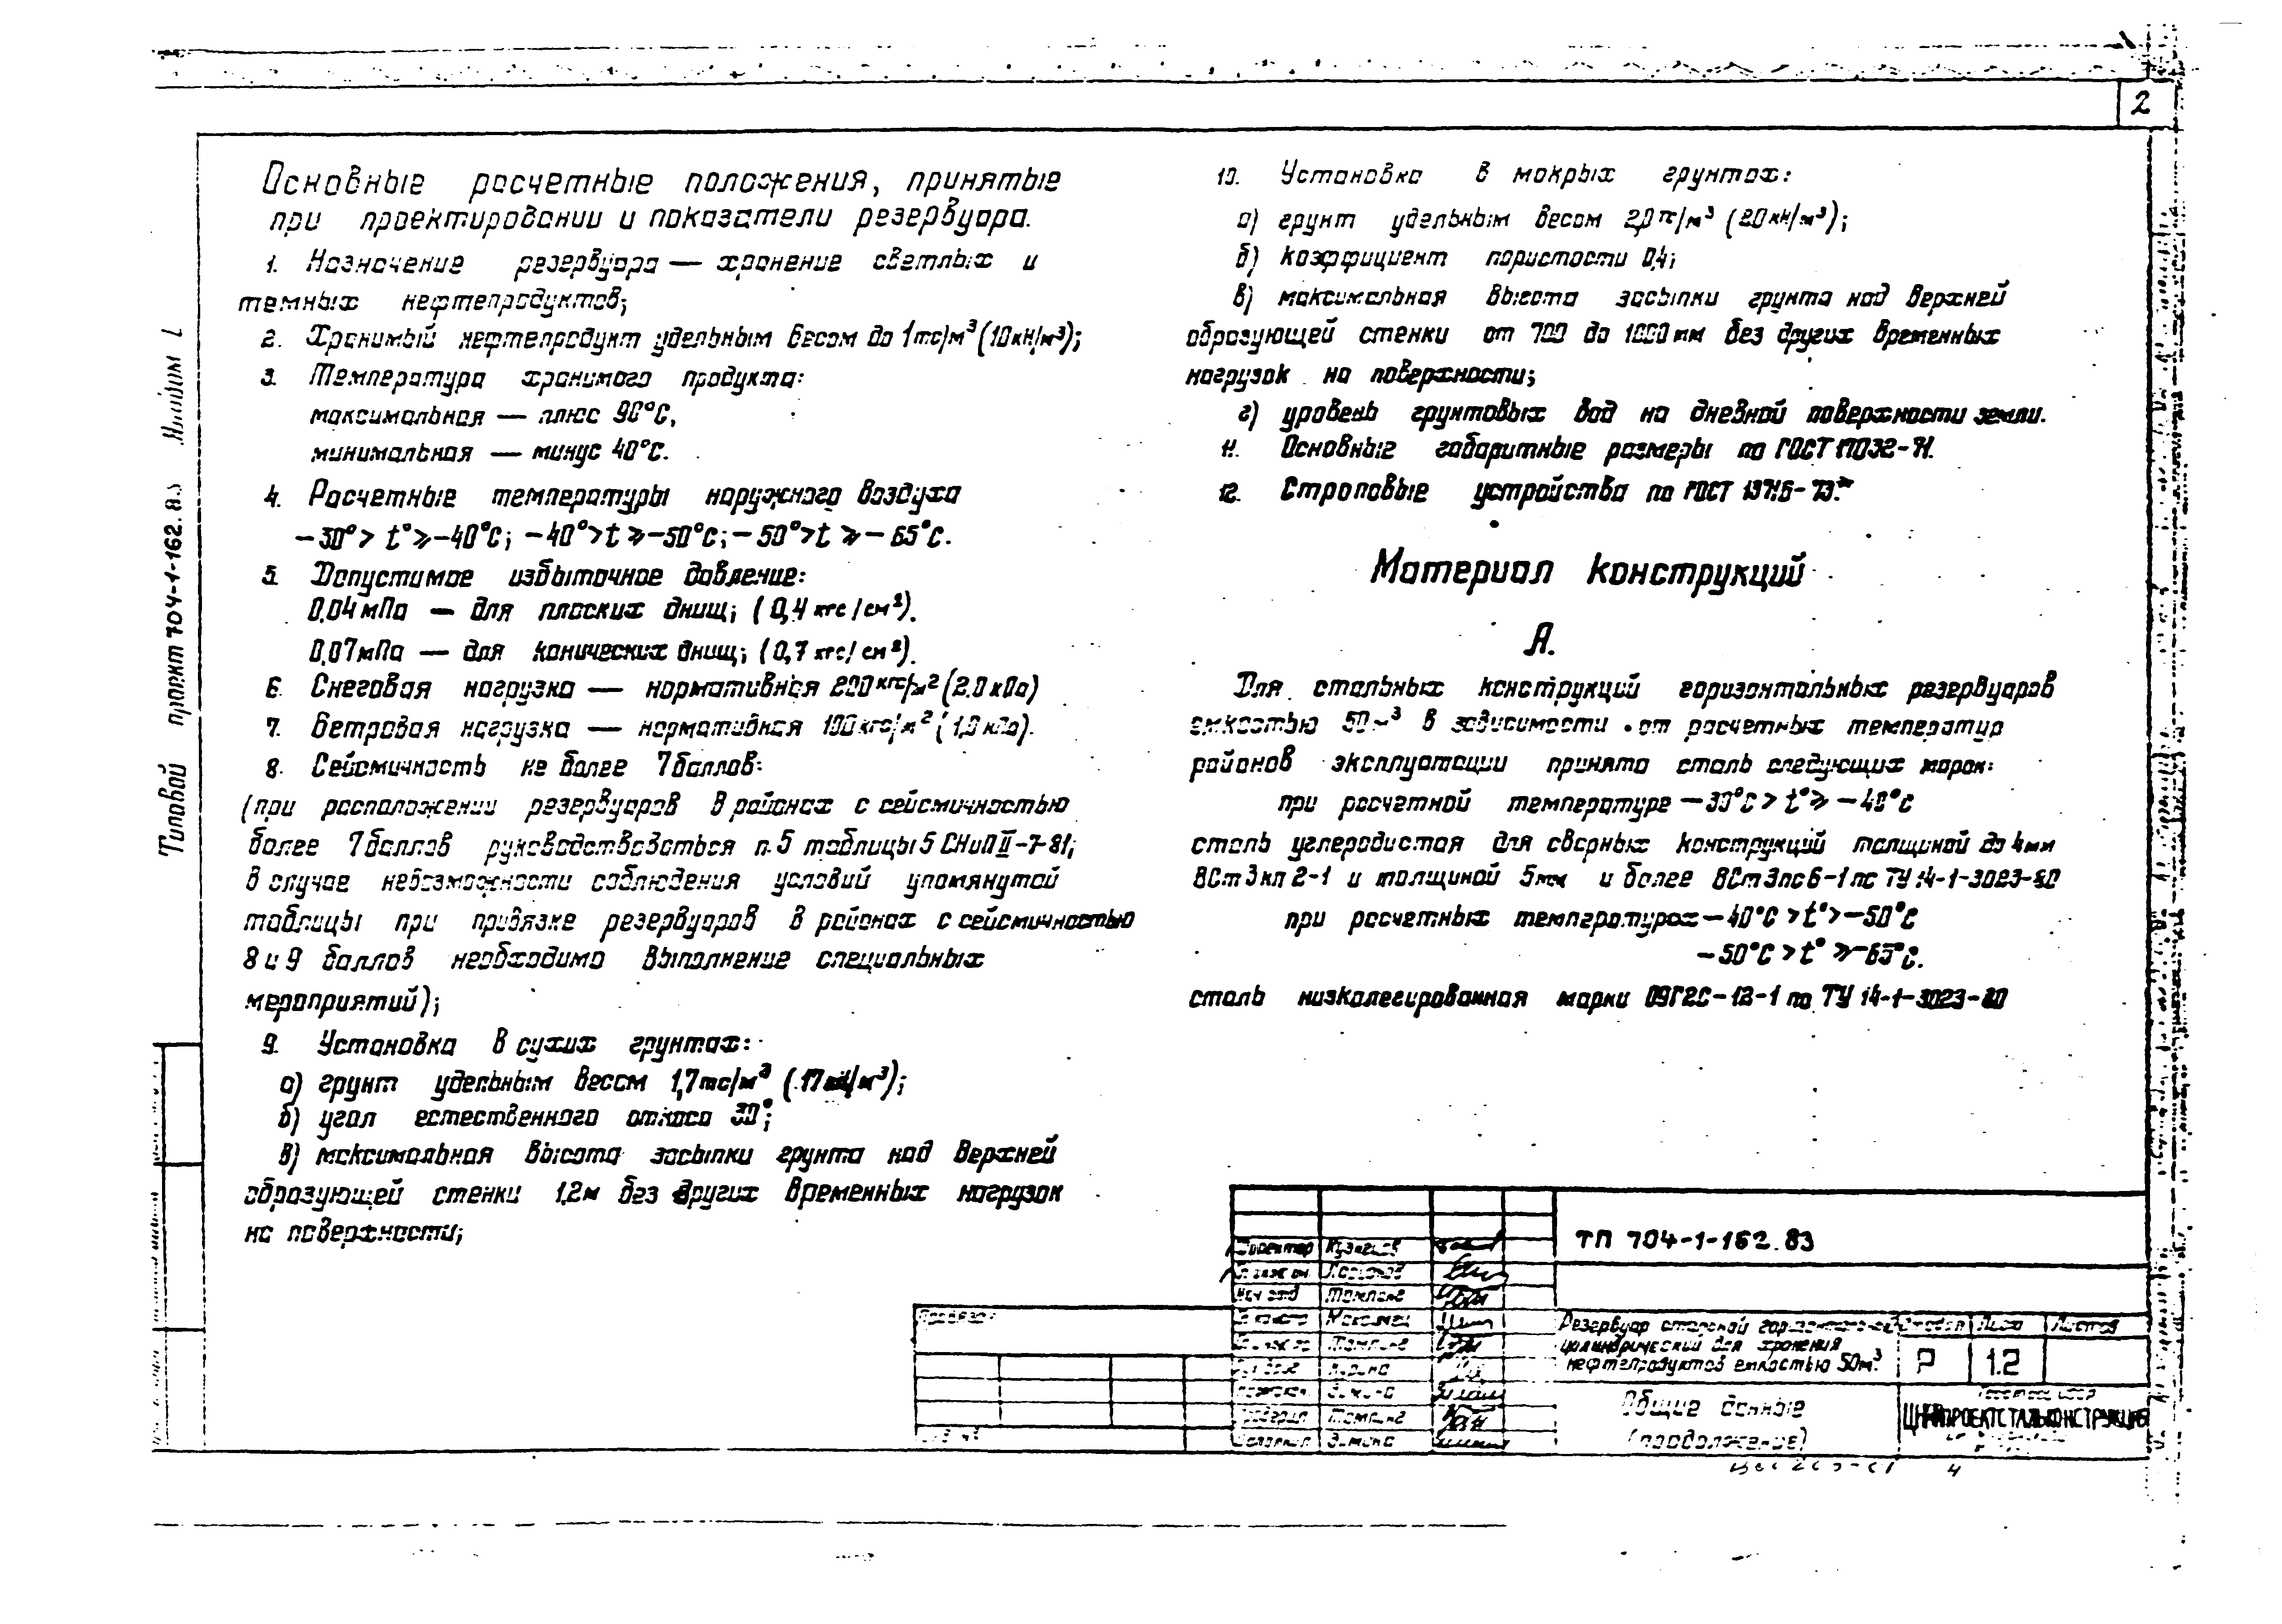 2
Типовой проект 704-1-162.83 Альбом I
Основные расчетные положения, принятые
при проектировании и показатели резервуара.
1. Назначение резервуара — хранение светлых и
темных нефтепродуктов;
2. Хранимый нефтепродукт удельным весом до 1тс/м³ (10кН/м³);
3. Температура хранимого продукта:
максимальная — плюс 90°С,
минимальная — минус 40°С.
4. Расчетные температуры наружного воздуха
-30°> t°⩾-40°С; -40°>t ⩾-50°С; -50°>t ⩾-65°С.
5. Допустимое избыточное давление:
0,04мПа — для плоских днищ; (0,4 кгс/см²).
0,07мПа — для конических днищ; (0,7 кгс/см²).
6. Снеговая нагрузка — нормативная 200кгс/м² (2.0 кПа)
7. Ветровая нагрузка — нормативная 100кгс/м² (1,0 кПа).
8. Сейсмичность не более 7 баллов:
(при расположении резервуаров в районах с сейсмичностью
более 7 баллов руководствоваться п.5 таблицы 5 СНиП II-7-81;
в случае невозможности соблюдения условий упомянутой
таблицы при привязке резервуаров в районах с сейсмичностью
8 и 9 баллов необходимо выполнение специальных
мероприятий);
9. Установка в сухих грунтах:
а) грунт удельным весом 1,7тс/м³ (17кН/м³);
б) угол естественного откоса 30°;
в) максимальная высота засыпки грунта над верхней
образующей стенки 1,2м без других временных нагрузок
на поверхности;
10. Установка в мокрых грунтах:
а) грунт удельным весом 2,0 тс/м³ (20кН/м³);
б) коэффициент пористости 0,4;
в) максимальная высота засыпки грунта над верхней
образующей стенки от 700 до 1000 мм без других временных
нагрузок на поверхности;
г) уровень грунтовых вод на дневной поверхности земли.
11. Основные габаритные размеры по ГОСТ 17032-71.
12. Строповые устройства по ГОСТ 13716-73.*
Материал конструкций
А.
Для стальных конструкций горизонтальных резервуаров
емкостью 50м³ в зависимости от расчетных температур
районов эксплуатации принята сталь следующих марок:
при расчетной температуре -30°С > t°⩾ -40°С
сталь углеродистая для сварных конструкций толщиной до 4мм
ВСт3кп2-1 и толщиной 5мм и более ВСт3пс6-1 по ТУ 14-1-3023-80
при расчетных температурах -40°С >t°> -50°С
-50°С >t° ⩾-65°С.
сталь низколегированная марки 09Г2С-12-1 по ТУ 14-1-3023-80
ТП 704-1-162.83
Директор Кузнецов
Нач отд
Проверил
Исполнил Зимина
Привязан
Резервуар стальной горизонтальный
цилиндрический для хранения
нефтепродуктов емкостью 50м³.
Стадия Лист Листов
Р 1.2
Общие данные
(продолжение)
Госстрой СССР
ЦНИИПРОЕКТСТАЛЬКОНСТРУКЦИЯ
4